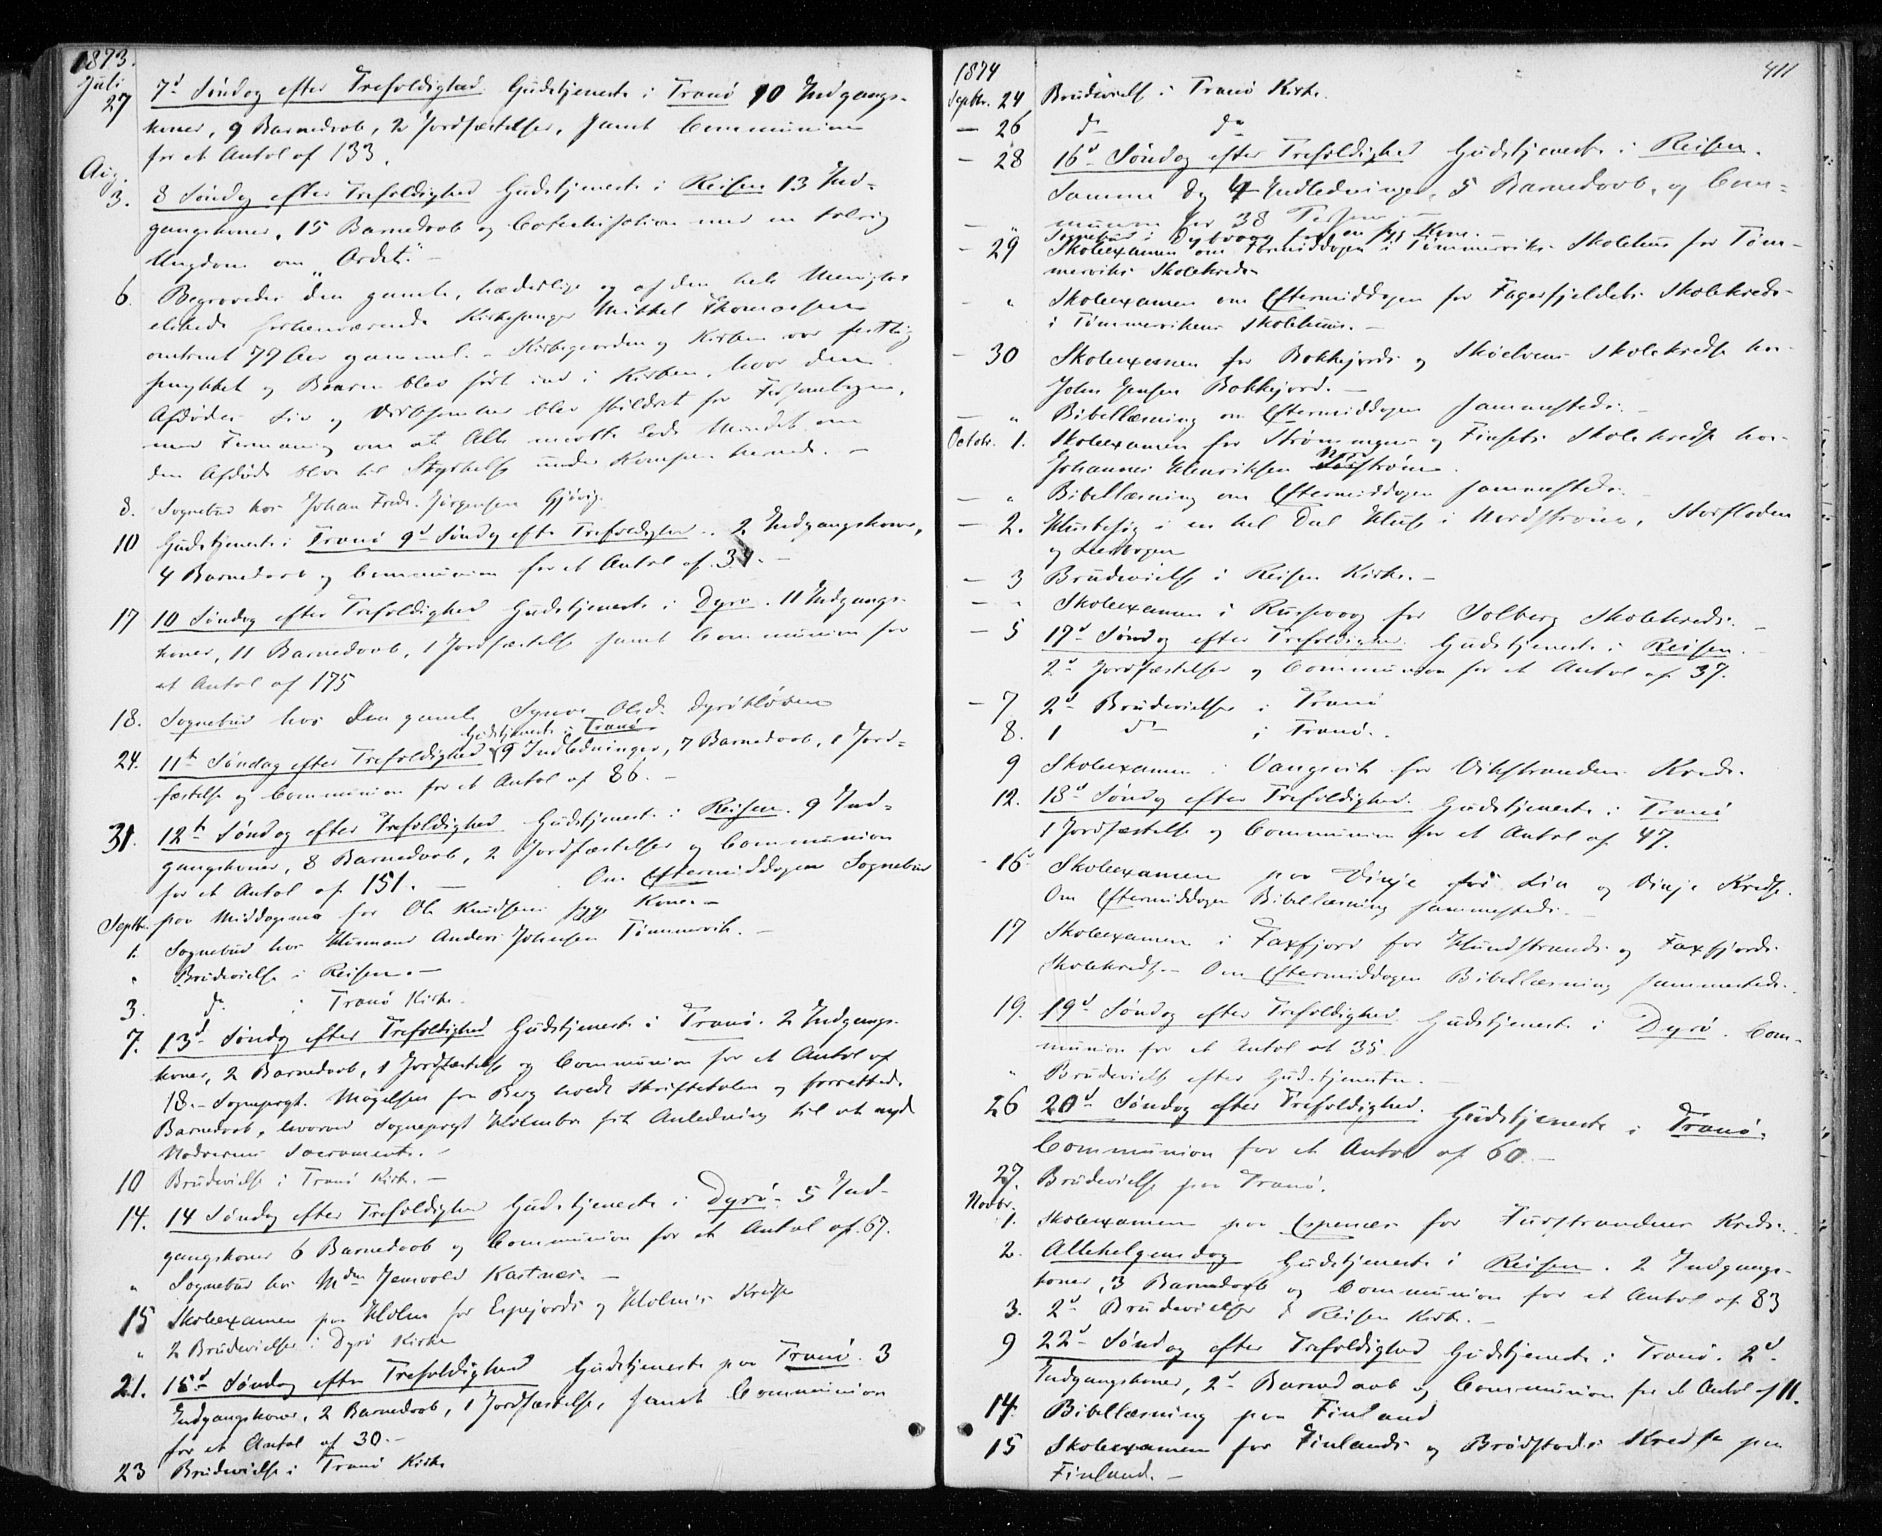 1873.
Juli
27 7d Søndag efter Trefoldighed Gudstjeneste i Tranø 10 Indgangs-
koner, 9 Barnedaab, 2 Jordfæstelser, samt Communion
for et Antal af 133.
Aug.
3. 8 Søndag efter Trefoldighed Gudstjeneste i Reisen 13 Ind-
gangskoner, 15 Barnedaab og Catechisation med en talrig
Ungdom om "Ordet". -
6. Begravedes den gamle, hæderlige og af den hele Menighed
elskede forhenværende Kirkesanger Mikkel Thomassen
omtrent 79 Aar gammel. - Kirkegaarden og Kirken var festlig
smykket og Baaren blev ført ind i Kirken, hvor den
Afdødes Liv og Virksomhed blev skildret for Forsamlingen,
med Formaning om at Alle maatte lade Mindet om
den Afdøde blive til Styrkelse under Kampen herned. -
8. Sognebud hos Johan Fredr. Jørgensen Gjøvig.
10 Gudstjeneste i Tranø 9d Søndag efter Trefoldighed. 2 Indgangskoner,
4 Barnedaab og Communion for et Antal af 34. -
17 10 Søndag efter Trefoldighed Gudstjeneste i Dyrø. 11 Indgangs-
koner, 11 Barnedaab, 1 Jordfæstelse samt Communion for
et Antal af 175
18. Sognebud hos den gamle Synve Olsd. Dyrøkløven
Gudstjeneste i Tranø
24. 11te Søndag efter Trefoldighed 9 Indledninger, 7 Barnedaab, 1 Jord-
fæstelse og Communion for et Antal af 86. -
31. 12te Søndag efter Trefoldighed Gudstjeneste i Reisen. 9 Ind-
gangskoner, 8 Barnedaab, 2 Jordfæstelser og Communion
for et Antal af 151. - Om Eftermiddagen Sognebud
Septbr. paa Middagsnes for Ole Knudsens syge Kone. -
1. Sognebud hos Husmand Anders Johnsen Tømmervik. -
" Brudevielse i Reisen. -
3. do i Tranø Kirke.
7. 13d Søndag efter Trefoldighed Gudstjeneste i Tranø. 2 Indgangs-
koner, 2 Barnedaab, 1 Jordfæstelse og Communion for et Antal af
18. - Sogneprgt. Magelssen fra Berg holdt Skriftetalen og forrettede
Barnedaab, hvorved Sogneprgt Holmboe fik Anledning til at nyde
Nadverens Sacramente. -
10 Brudevielse i Tranø Kirke. -
14. 14 Søndag efter Trefoldighed Gudstjeneste i Dyrø. 5 Ind-
gangskoner 6 Barnedaab og Communion for et Antal af 67.
" Sognebud hos Mdm Jenvold Kastnes. -
15 Skoleexamen paa Holm for Espejords og Holms Kredse
" 2 Brudevielser i Dyrø Kirke
21. 15d Søndag efter Trefoldighed Gudstjeneste paa Tranø. 3
Indgangskoner, 2 Barnedaab, 1 Jordfæstelse, samt Communion
for et Antal af 30. -
23 Brudevielse i Tranø Kirke
1874
411
Septbr. 24 Brudevielse i Tranø Kirke.
- 26 do do
- 28 16d Søndag efter Trefoldighed Gudstjeneste i Reisen.
Samme Dag 4 Indledninger, 5 Barnedaab, og Com-
munion for 38 Personer. -
- " Sognebud i Dybvaag for en syg Kone. -
29 Skoleexamen om Formiddagen i Tømmerviks Skolehus for Tøm-
merviks Skolekreds
- " Skoleexamen om Eftermiddagen for Fagerfjeldets Skolekreds
i Tømmervikens Skolehuus. -
- 30 Skoleexamen for Bokkejords og Skøelvens Skolekredse hos
John Jensen Bokkejord. -
- " Bibellæsning om Eftermiddagen sammesteds. -
Octobr. 1. Skoleexamen for Strømmens og Finsæts Skolekredse hos
Johannes Henriksen Nordstrøm.
- " Bibellæsning om Eftermiddagen sammesteds.
- 2. Husbesøg i en hel Del Huse i Nordstrøm, Storfloden
og Leerbogen
- 3 Brudevielse i Reisen Kirke. -
- " Skoleexamen i Russevaag for Solberg Skolekreds. -
- 5 17d Søndag efter Trefoldighed. Gudstjeneste i Reisen. -
2d Jordfæstelser og Communion for et Antal af 37.
- 7 2d Brudevielser i Tranø
8. 1 do i Tranø.
9 Skoleexamen i Vangsvik for Vikstrandens Kreds.
12. 18d Søndag efter Trefoldighed. Gudstjeneste i Tranø
1 Jordfæstelse og Communion for et Antal af 47.
- 16 Skoleexamen paa Vinje for Lia og Vinje Kredse.
Om Eftermiddagen Bibellæsning sammesteds. -
17 Skoleexamen i Faxfjord for Hundstrands og Faxfjords
Skolekreds. - Om Eftermiddagen Bibellæsning sammesteds.
19. 19d Søndag efter Trefoldighed. Gudstjeneste i Dyrø. Com-
munion for et Antal af 35.
" Brudevielse efter Gudstjenesten. -
26 20d Søndag efter Trefoldighed. Gudstjeneste i Tranø.
Communion for et Antal af 60. -
27. Brudevielse paa Tranø.
Novbr.
1. Skoleexamen paa Espenes for Furstrandens Kreds.
2. Allehelgensdag Gudstjeneste i Reisen. 2 Indgangs-
koner, 3 Barnedaab og Communion for et Antal af 83
3. 2d Brudevielser i Reisen Kirke. -
9 22d Søndag efter Trefoldighed Gudstjeneste i Tranø. 2d
Indgangskoner, 2d Barnedaab og Communion for et Antal af 11.
14. Bibellæsning paa Finland
15 Skoleexamen for Finlands og Brødstads Kredse paa
Finland. -